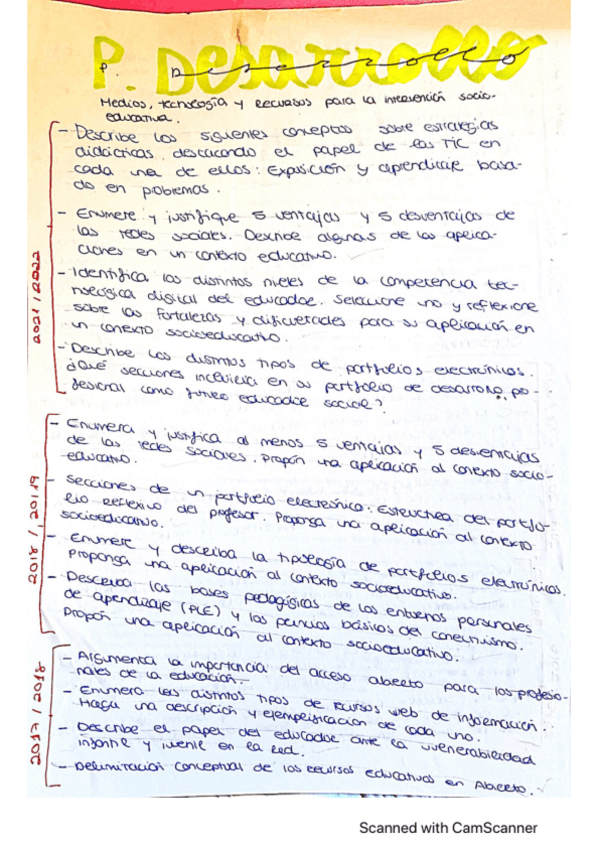 P. Desarrollo
Medios, tecnología y Recursos para la intervención socio-
educativa.
2021/2022
- Describe los siguientes conceptos sobre estrategias
didácticas, destacando el papel de las TIC en
cada uno de ellos: Exposición y aprendizaje basa-
do en problemas.
- Enumere y justifique 5 ventajas y 5 desventajas de
las redes sociales. Describe algunas de las aplica-
ciones en un contexto educativo.
- Identifica los distintos niveles de la competencia tec-
nológica digital del educador. Seleccione uno y reflexione
sobre las fortalezas y dificultades para su aplicación en
un contexto socioeducativo.
- Describe los distintos tipos de portfolios electrónicos.
¿Qué secciones incluiría en su portfolio de desarrollo pro-
fesional como futuro educador social?
2018/2019
- Enumera y justifica al menos 5 ventajas y 5 desventajas
de las redes sociales. Propón una aplicación al contexto socio-
educativo.
- Secciones de un portfolio electrónico. Estructura del portfo-
lio reflexivo del profesor. Proponga una aplicación al contexto
socioeducativo.
- Enumere y describa la tipología de portfolios electrónicos.
Proponga una aplicación al contexto socioeducativo.
- Describa las bases pedagógicas de los entornos personales
de aprendizaje (PLE) y los principios básicos del conectivismo.
Propón una aplicación al contexto socioeducativo.
2017/2018
- Argumenta la importancia del acceso abierto para los profesio-
nales de la educación.
- Enumera los distintos tipos de recursos web de información.
Haga una descripción y ejemplificación de cada uno.
- Describe el papel del educador ante la vulnerabilidad
infantil y juvenil en la Red.
- Delimitación conceptual de los recursos educativos en Abierto.
Scanned with CamScanner